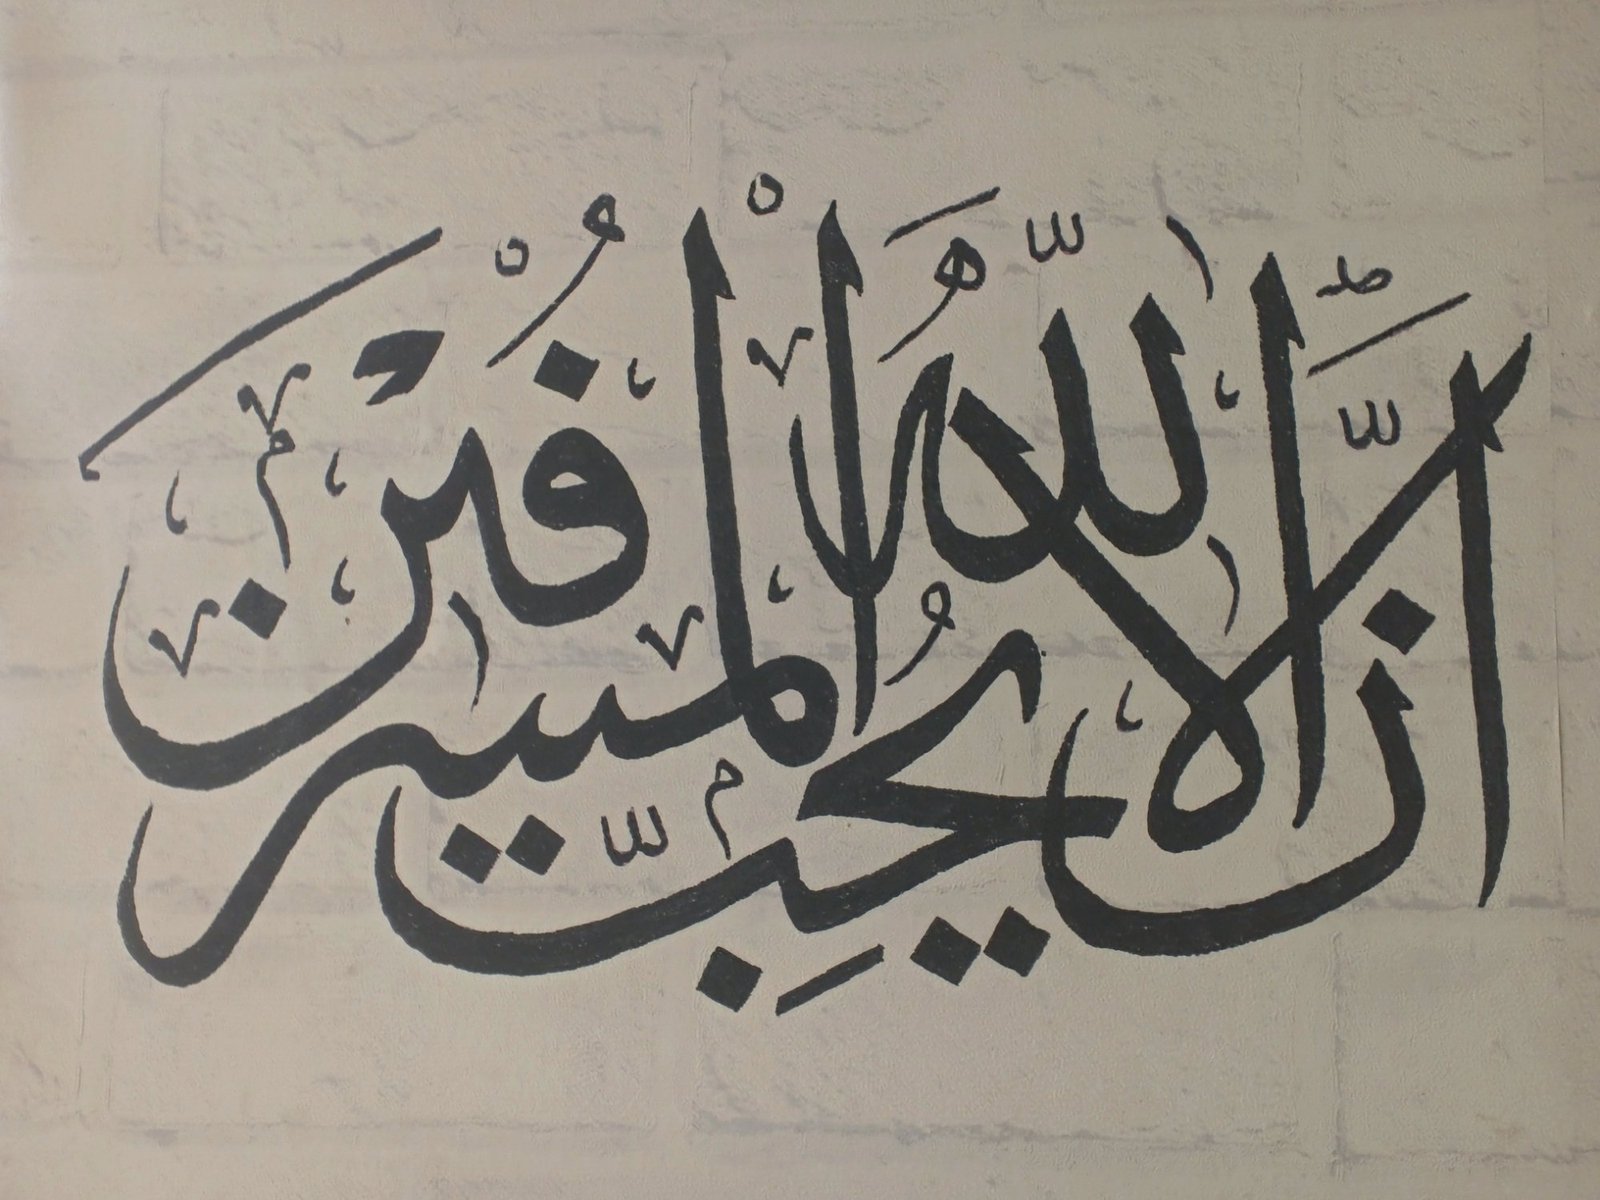 انَّ اللهَ لا يُحِبُّ الْمُسْرفين